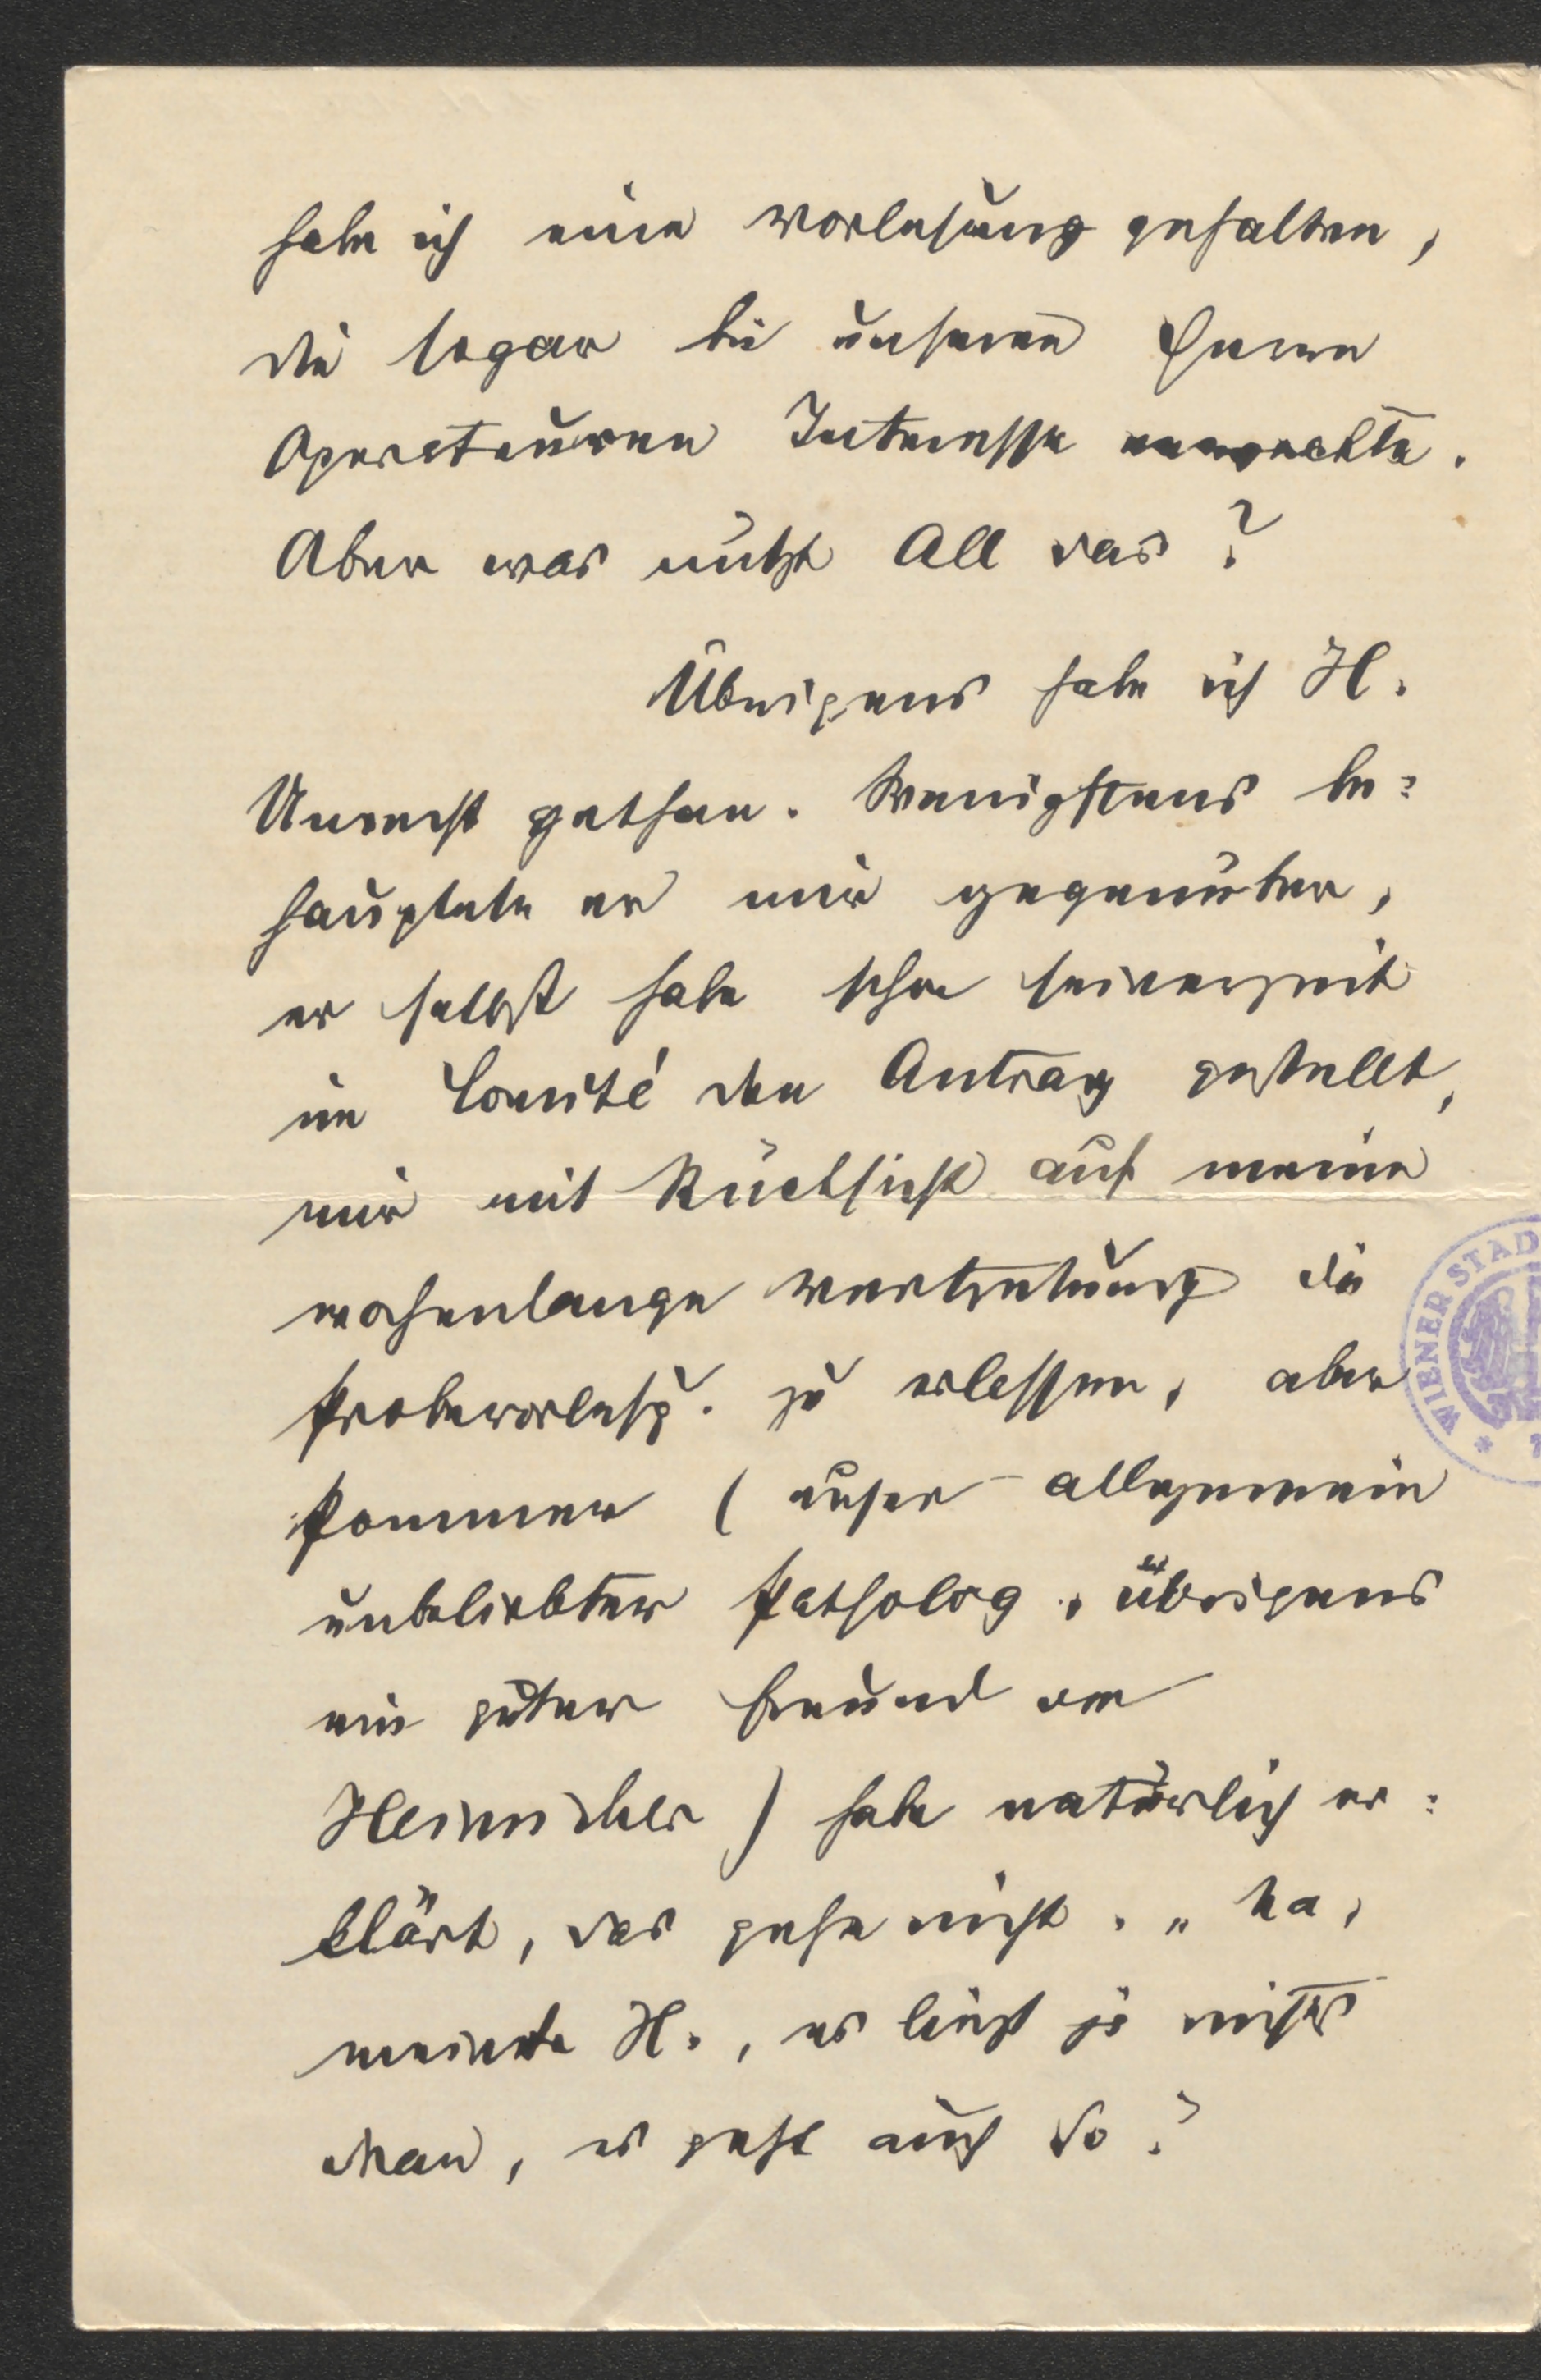 habe ich eine Vorlesung gehalten,
die sogar bei unseren Herren
Operateuren Interesse erweckte.
Aber was nützt All das?
Übrigens habe ich H.
Unrecht gethan. Wenigstens be=
hauptete er mir gegenüber,
er selbst habe schon seinerzeit
im Comité den Antrag gestellt,
mir mit Rücksicht auf meine
wochenlange Vertretung die
Probevorlesg. zu erlassen, aber
Pommer (unser allgemein
unbeliebter Patholog, übrigens
ein guter Freund von
Heinricher) habe natürlich er=
klärt, das gehe nicht. „Na,
meinte H., es liegt ja nichts
dran, es geht auch so."
WIENER STAD